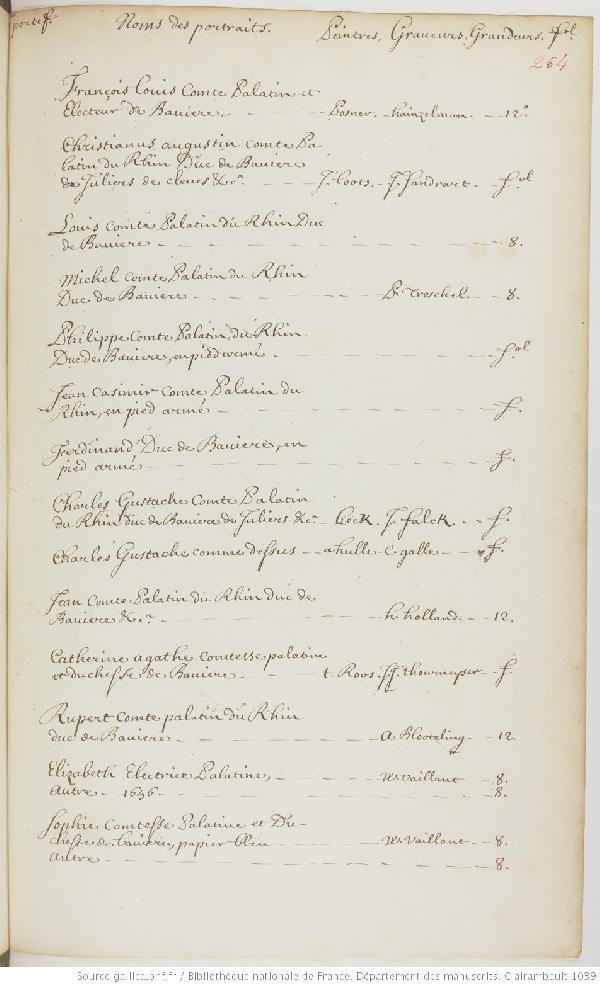 portef. Noms des portraits. Peintres, Graveurs. Grandeurs. fol.
264
François Louis Comte Palatin et
Electeur de Baviere. Posner. hainzelman. 12º
Christianus augustin comte Pa-
latin du Rhin Duc de Baviere
de Juliers de cleves &c.ª J. loots. J. sandrart. fol
Louis comte Palatin du Rhin Duc
de Baviere. 8.
Michel comte Palatin du Rhin
Duc de Baviere. P. Troschel. 8.
Philippe Comte Palatin, du Rhin
Duc de Baviere, en pied armé. fol
Jean Casimir Comte Palatin du
Rhin, en pied armé. f.
Ferdinand Duc de Baviere, en
pied armé. f.
Charles Gustache Comte Palatin
du Rhin duc de Baviere de Juliers &c.ª beck. J. falck. f.
Charles Gustache comme dessus a hulle c. galle f.
Jean Comte Palatin du Rhin duc de
Baviere &c.ª h. holland. 12.
Catherine agathe comtesse palatine
et duchesse de Baviere. t. Roos. J.J. thourneyser f.
Rupert comte palatin du Rhin
duc de Baviere. A Blooteling 12.
Elizabeth Electrice Palatine, W. vaillant 8.
Autre. 1656. 8.
Sophie Comtesse Palatine et Du-
chesse de baviere, papier bleu W. vaillant 8.
Autre 8.
Source gallica.bnf.fr / Bibliothèque nationale de France. Département des manuscrits. Clairambault 1039